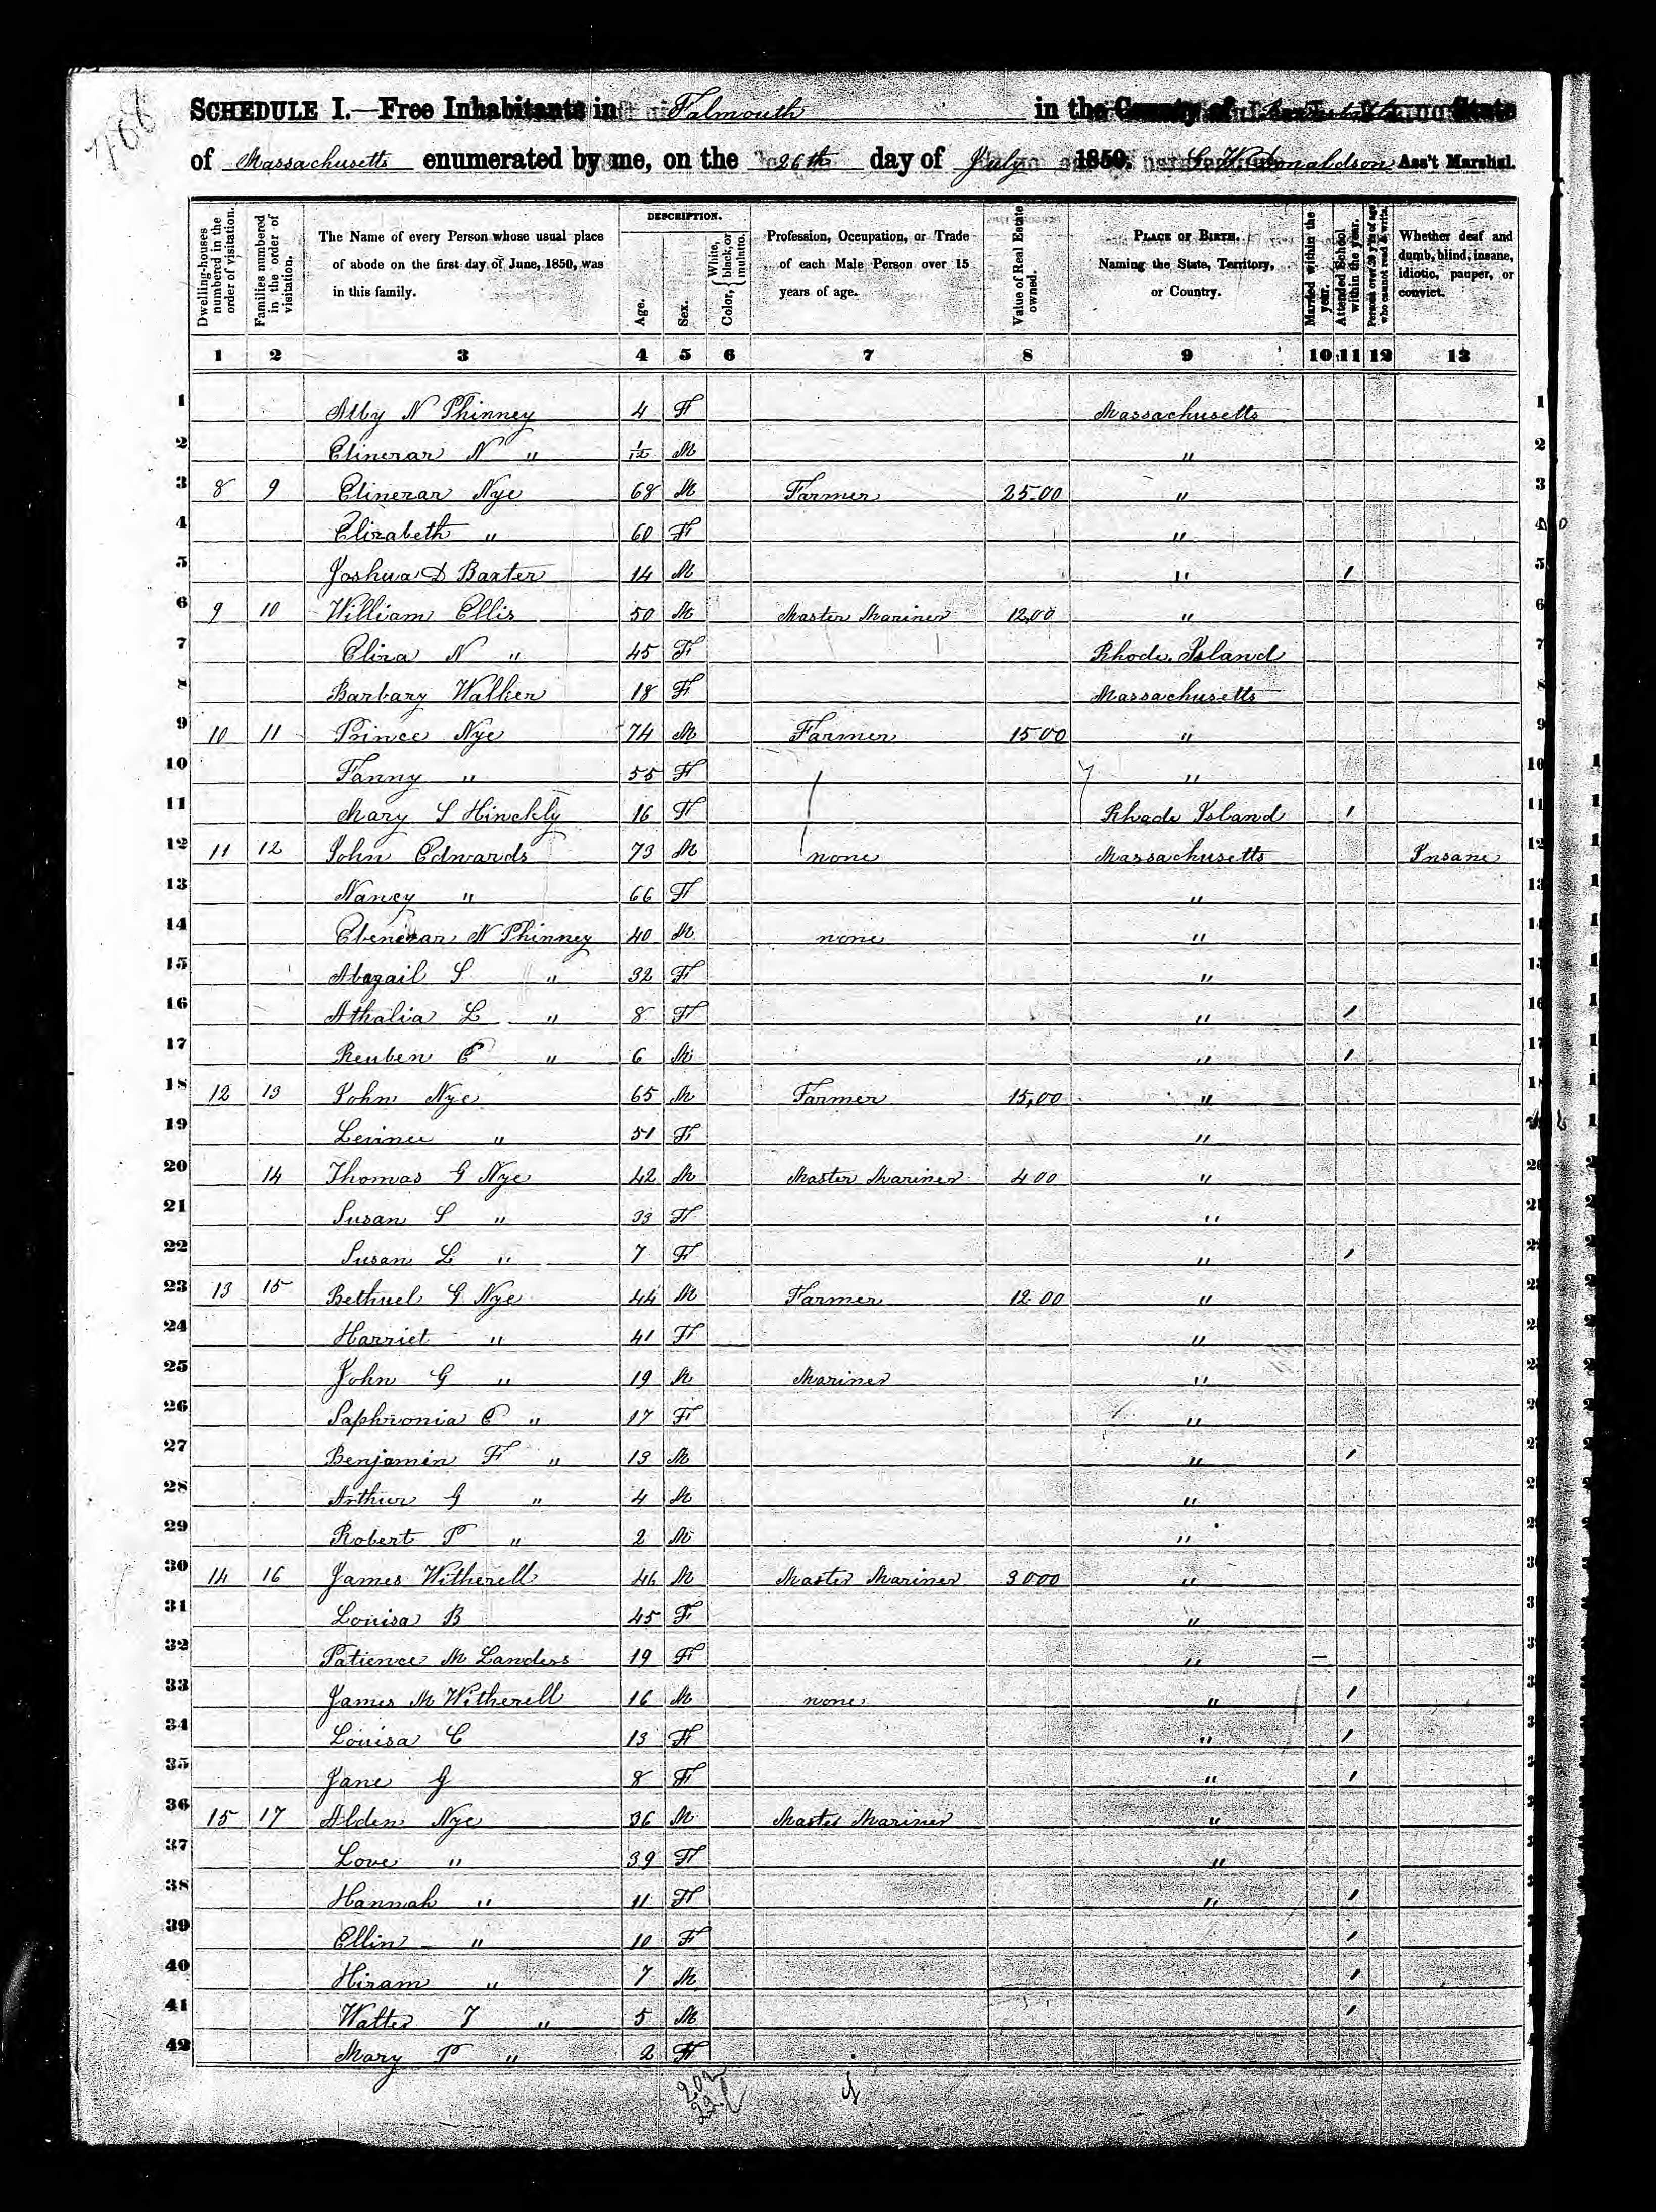 SCHEDULE I.—Free Inhabitants in Falmouth in the County of Barnstable State
of Massachusetts enumerated by me, on the 26th day of July 1850. Donaldson Ass't Marshal.
Dwelling-houses numbered in the order of visitation.
Families numbered in the order of visitation.
The Name of every Person whose usual place of abode on the first day of June, 1850, was in this family.
DESCRIPTION.
Age.
Sex.
Color, { White, black, or mulatto.
Profession, Occupation, or Trade of each Male Person over 15 years of age.
Value of Real Estate owned.
PLACE OF BIRTH. Naming the State, Territory, or Country.
Married within the year.
Attended School within the year.
Persons over 20 y'rs of age who cannot read & write.
Whether deaf and dumb, blind, insane, idiotic, pauper, or convict.
1 2 3 4 5 6 7 8 9 10 11 12 13
1 N Phinney 4 F Massachusetts 1
2 Elinerar N " 1/12 M " 2
3 8 9 Elinerar Nye 68 M Farmer 25.00 " 3
4 Elizabeth " 60 F " 4
5 Joshua D Baxter 14 M " / 5
6 9 10 William Ellis 50 M Master Mariner 12,00 " 6
7 Eliza N " 45 F Rhode Island 7
8 Barbary Walker 18 F Massachusetts 8
9 10 11 Prince Nye 74 M Farmer 15 00 " 9
10 Fanny " 55 F " 10
11 Mary S Hinckly 16 F Rhode Island / 11
12 11 12 John Edwards 73 M none Massachusetts Insane 12
13 Nancy " 66 F " 13
14 Ebenezar N Phinney 40 M none " 14
15 Abagail S " 32 F "
16 Athalia L " 8 F " / 16
17 Reuben E " 6 M " / 17
18 12 13 John Nye 65 M Farmer 15,00 "
19 " 51 F "
20 14 Thomas G Nye 42 M Master Mariner 400 "
21 Susan S " 33 F "
22 Susan L " 7 F " /
23 13 15 Bethuel G Nye 44 M Farmer 12.00 "
24 Harriet " 41 F "
25 John G " 19 M Mariner "
26 Saphronia E " 17 F "
27 Benjamin F " 13 M " /
28 Arthur G " 4 M "
29 Robert P " 2 M "
30 14 16 James Witherell 46 M Master Mariner 3000 "
31 Louisa B 45 F "
32 Patience M Landers 19 F " —
33 James M Witherell 16 M none " /
34 Louisa C 13 F " /
35 Jane G 8 F " /
36 15 17 Alden Nye 36 M Master Mariner "
37 Love " 39 F "
38 Hannah " 11 F " /
39 Ellin " 10 F /
40 Hiram " 7 M /
41 Walter T " 5 M /
42 Mary P " 2 F